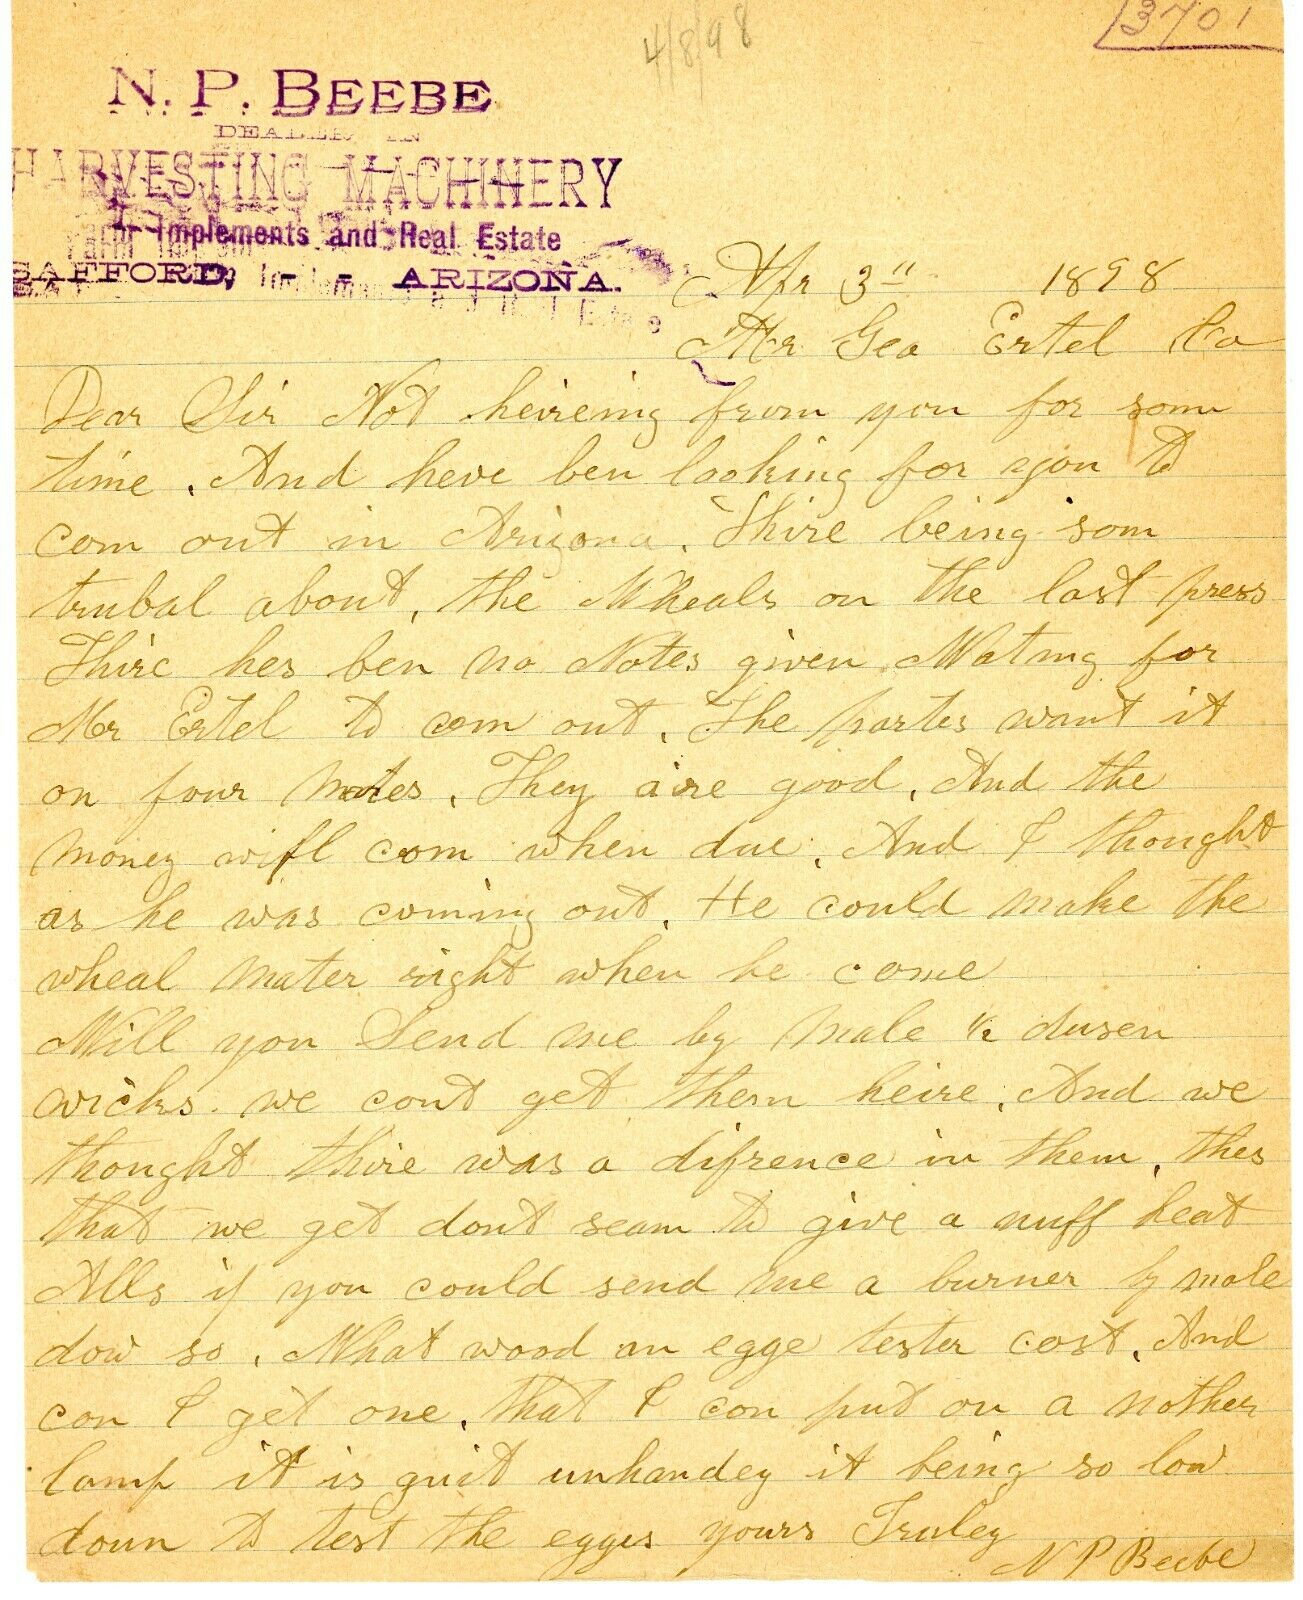 3701
4/8/98
N. P. BEEBE
DEALER IN
HARVESTING MACHINERY
Farm Implements and Real Estate
SAFFORD, - - ARIZONA.
Apr 3" 1898
Mr Geo Ertel Co
Dear Sir Not heireing from you for som
time. And heve ben looking for you to
com out in Arizona. Thire being som
trubal about, the Wheals on the last press
Thire hes ben no Notes given Wating for
Mr Ertel to com out. The partes want it
on four notes. They aire good. And the
money will com when due. And I thought
as he was coming out. He could make the
wheal mater right when he come
Will you Send me by male 1/2 dusen
wicks. we cont get them heire. And we
thought thire was a difrence in them. thes
that we get dont seam to give a nuff heat
Alls if you could send me a burner by male
dow so. What wood an egge tester cost. And
con I get one. that I con put on a nother
lamp it is quit unhandey it being so low
doun to test the egges yours Truley
N P Beebe